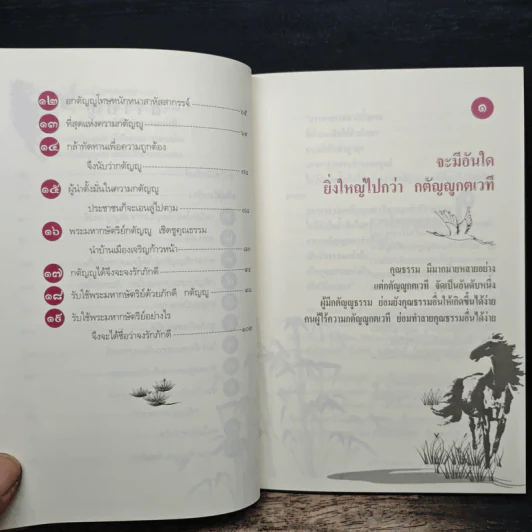 ๑๒ อกตัญญูโทษหนักหนาสาหัสสากรรจ์
๑๓ ที่สุดแห่งความกตัญญู
๑๔ กล้าทัดทานเพื่อความถูกต้อง
จึงนับว่ากตัญญู
๑๕ ผู้นำตั้งมั่นในความกตัญญู
ประชาชนก็จะเอนลู่ไปตาม
๑๖ พระมหากษัตริย์กตัญญู เชิดชูคุณธรรม
นำบ้านเมืองเจริญก้าวหน้า
๑๗ กตัญญูได้จึงจะจงรักภักดี
๑๘ รับใช้พระมหากษัตริย์ด้วยภักดี กตัญญู
๑๙ รับใช้พระมหากษัตริย์อย่างไร
จึงจะได้ชื่อว่าจงรักภักดี
๑
จะมีอันใด
ยิ่งใหญ่ไปกว่า กตัญญูกตเวที
คุณธรรม มีมากมายหลายอย่าง
แต่กตัญญูกตเวที จัดเป็นอันดับหนึ่ง
ผู้มีกตัญญูธรรม ย่อมยังคุณธรรมอื่นให้เกิดขึ้นได้ง่าย
คนผู้ไร้ความกตัญญูกตเวที ย่อมทำลายคุณธรรมอื่นได้ง่าย